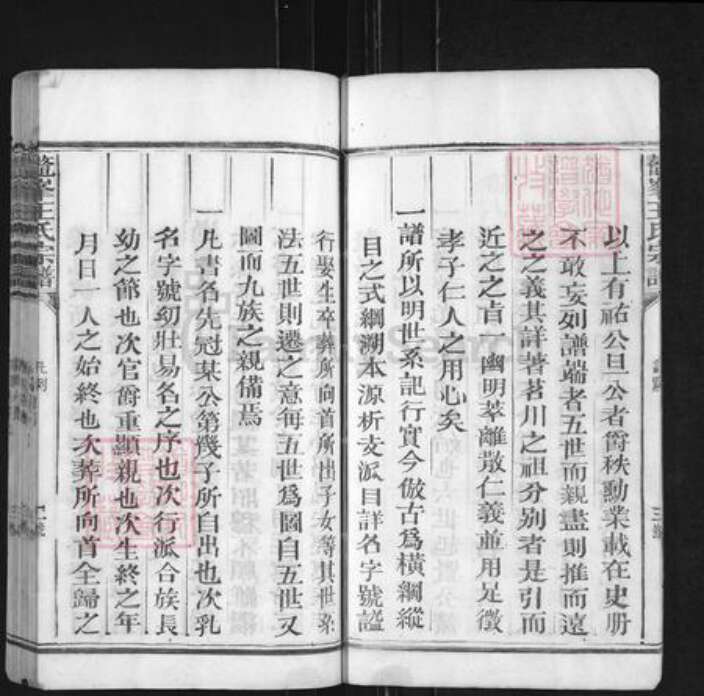 以上有祐公旦公者爵秩勳業載在史册
不敢妄列譜端者五世而親盡則推而遠
之之義其詳著茗川之祖分别者是引而
近之之㫖一幽明萃離散仁義並用足徵
孝子仁人之用心矣
一譜所以明世系記行實今倣古爲橫綱縱
目之式綱溯本源析支派目詳名字號謚
行娶生卒葬所向首所出子女等其世系
法五世則遷之意每五世爲圖自五世又
圖而九族之親備焉
一凡書名先冠某公第幾子所自出也次乳
名字號幼壯易名之序也次行派合族長
幼之節也次官爵重顯親也次生終之年
月日一人之始終也次葬所向首全歸之
王氏宗譜
王氏宗譜
凡例